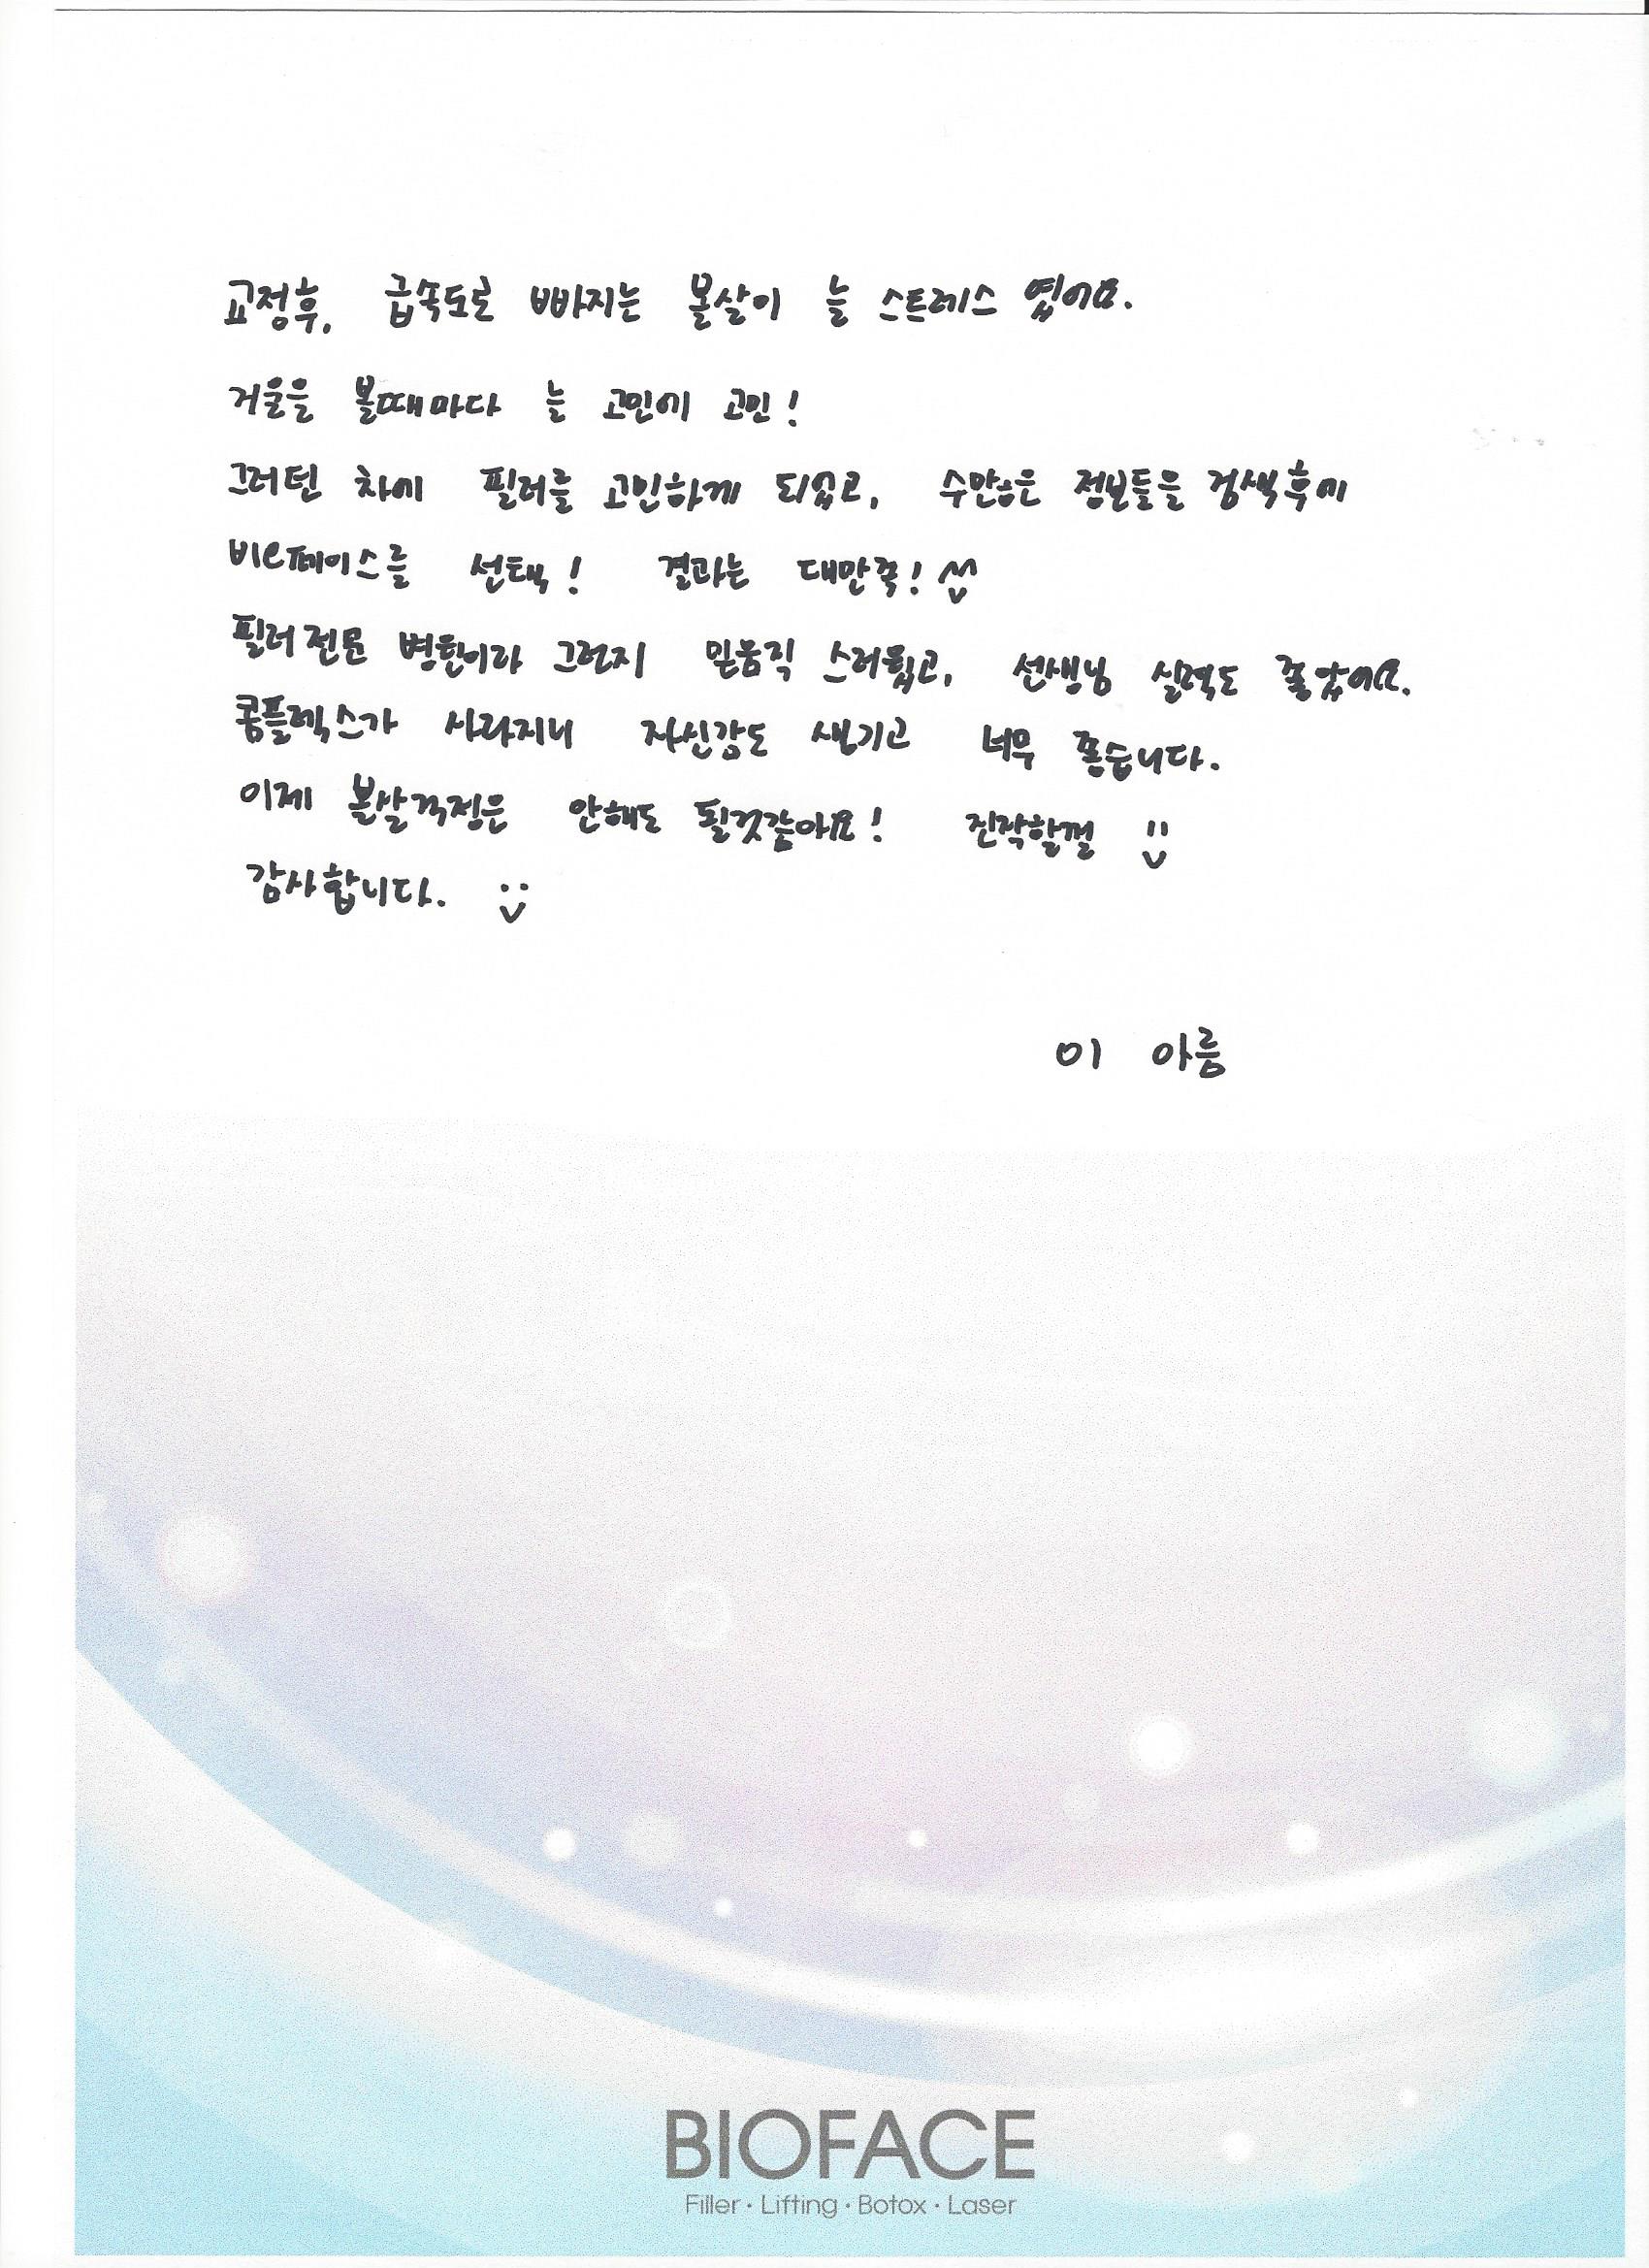 교정후, 급속도로 빠지는 볼살이 늘 스트레스 였어요.
거울을 볼때마다 늘 고민에 고민!
그러던 차에 필러를 고민하게 되었고, 수많은 정보들을 검색후에
바이오페이스를 선택! 결과는 대만족! ^^
필러전문 병원이라 그런지 믿음직 스러웠고, 선생님 실력도 좋았어요.
콤플렉스가 사라지니 자신감도 생기고 너무 좋습니다.
이제 볼살걱정은 안해도 될것같아요! 진작할껄
감사합니다.
이 아름
BIOFACE
Filler · Lifting · Botox · Laser